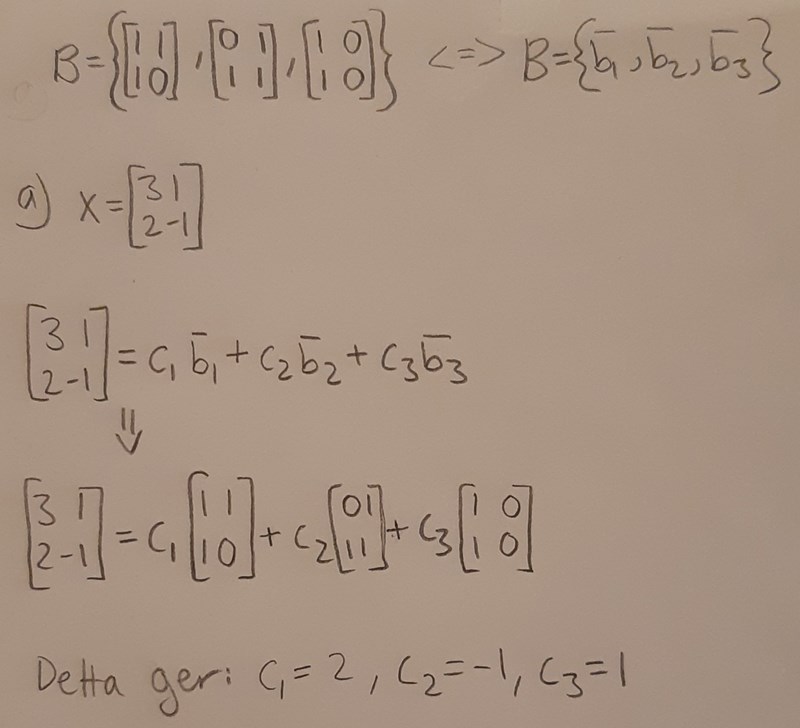 B={[1 1; 1 0], [0 1; 1 1], [1 0; 1 0]} <=> B={b̄₁, b̄₂, b̄₃}
a) X=[3 1; 2 -1]
[3 1; 2 -1] = c₁b̄₁ + c₂b̄₂ + c₃b̄₃
⇓
[3 1; 2 -1] = c₁[1 1; 1 0] + c₂[0 1; 1 1] + c₃[1 0; 1 0]
Detta ger: c₁=2, c₂=-1, c₃=1